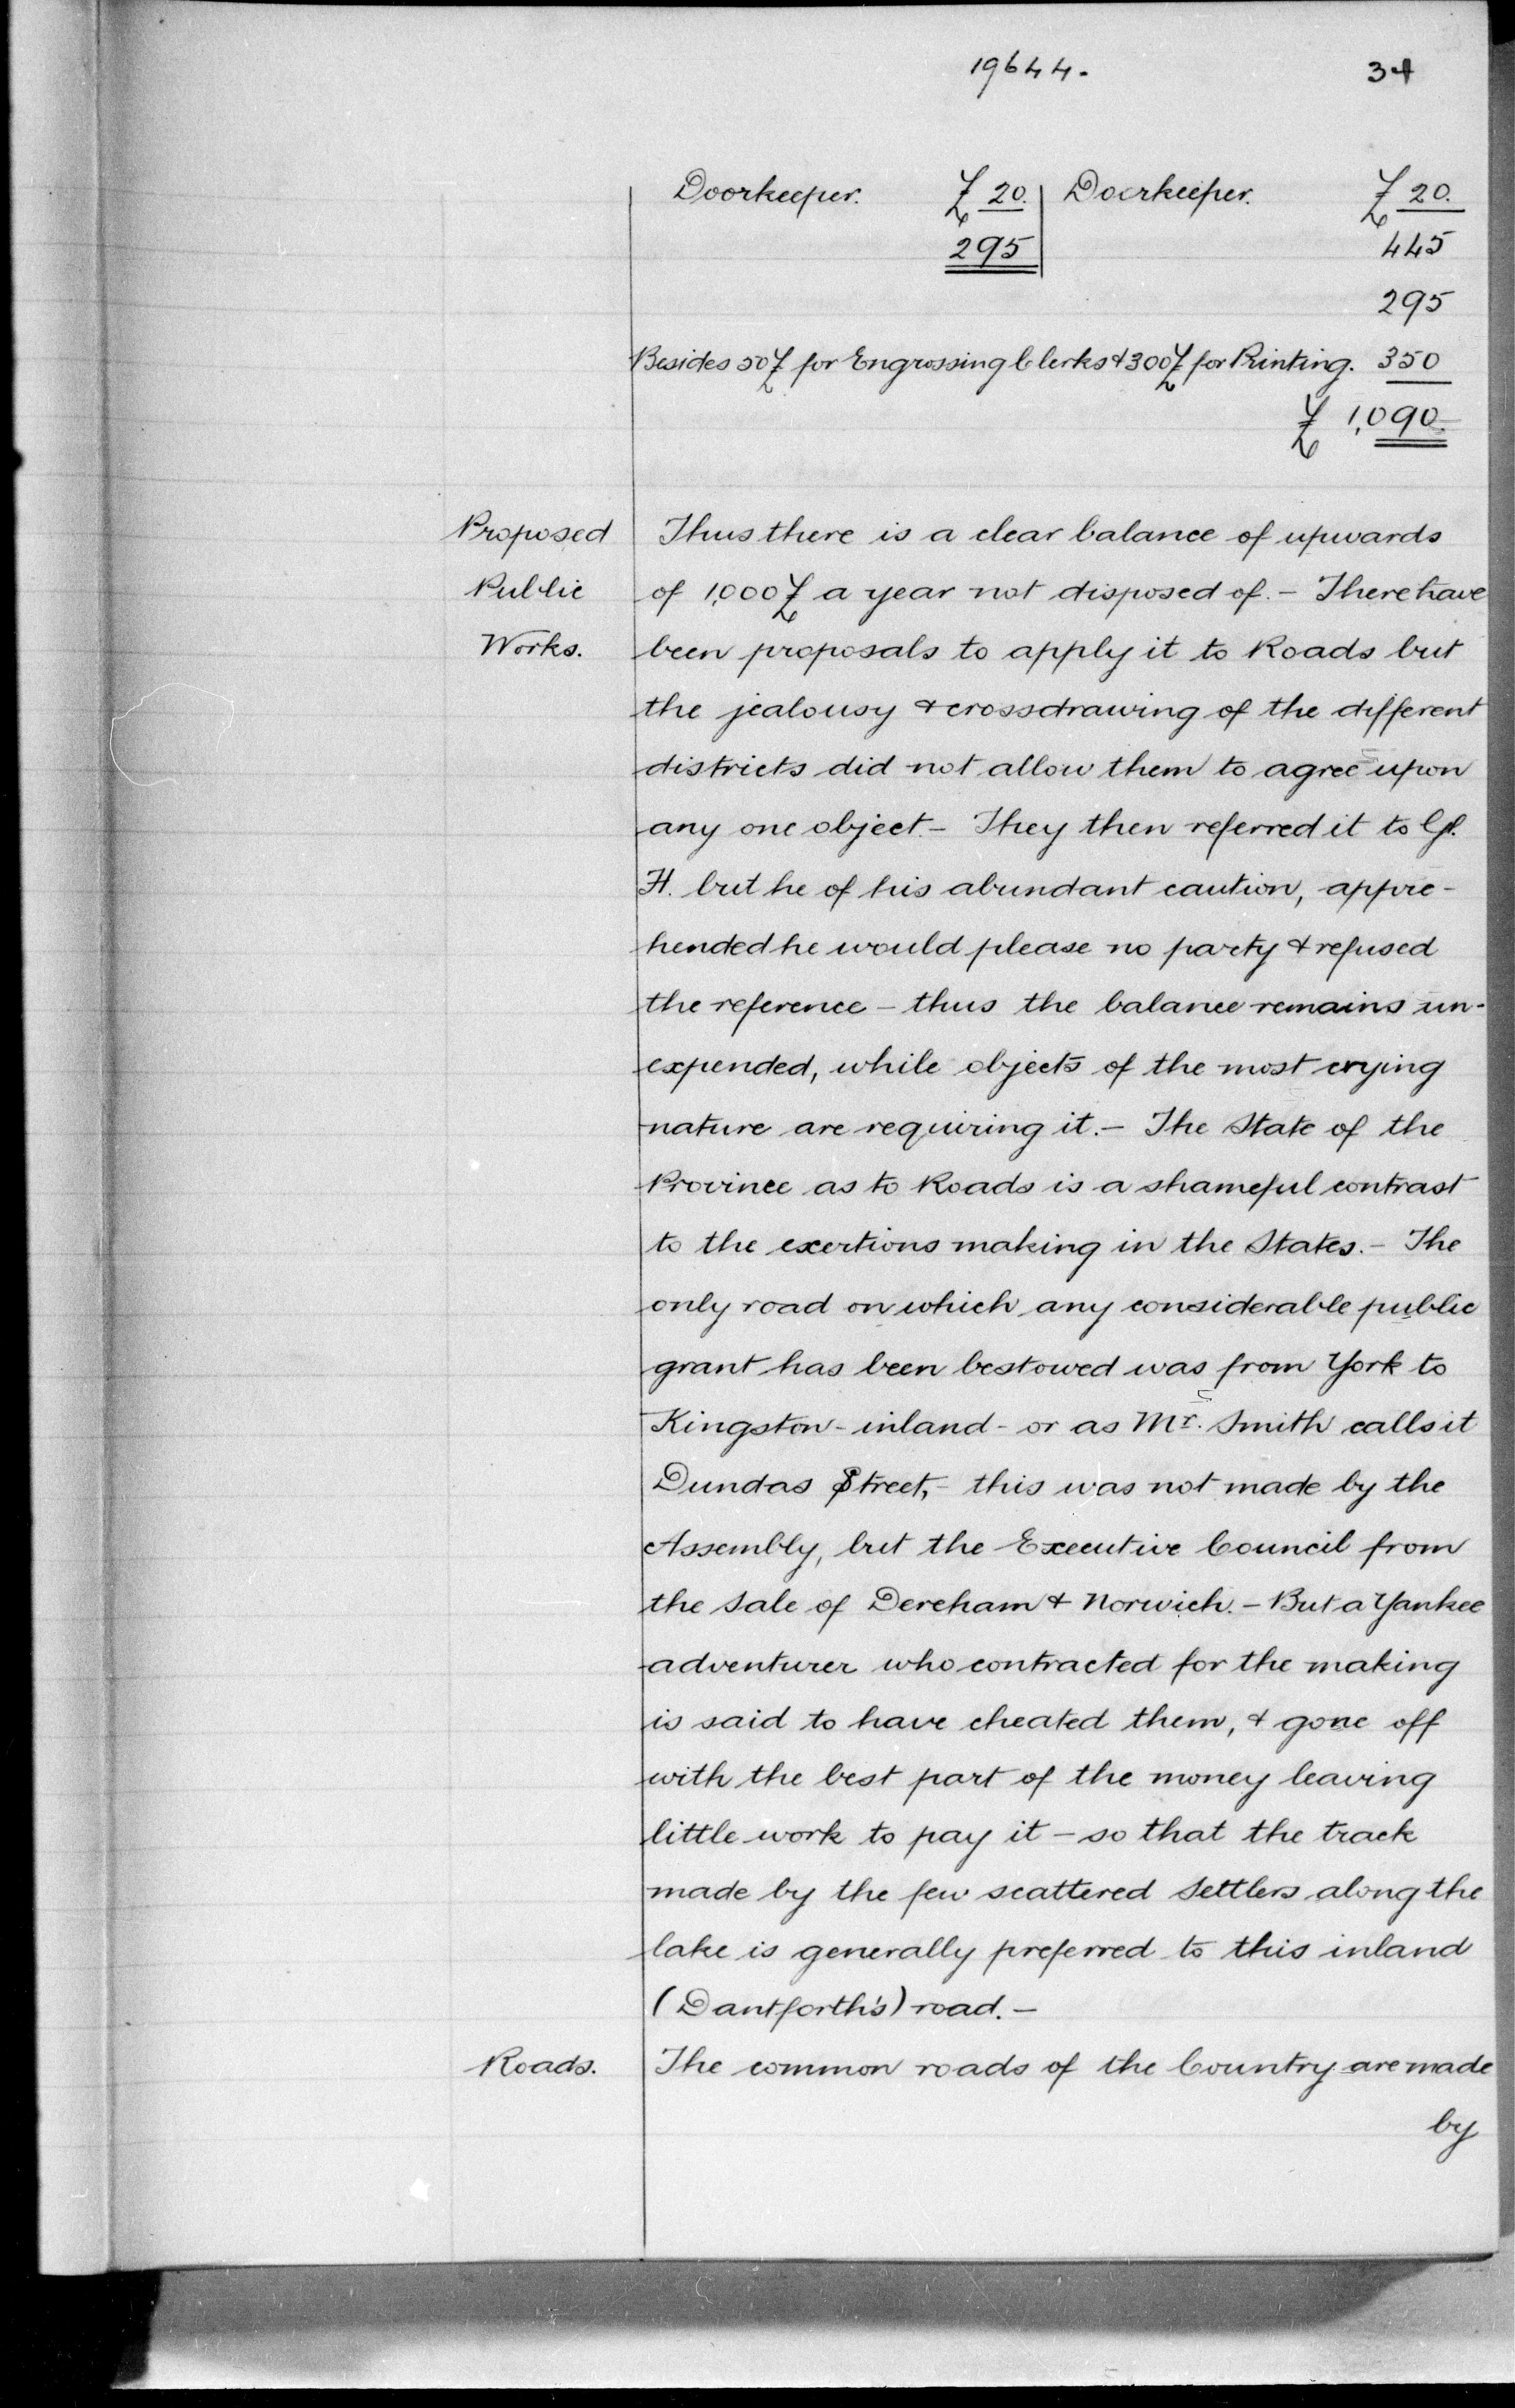 19644. 34
Doorkeeper. £ 20. Doorkeeper. £ 20.
295 445
295
Besides 50£ for Engrossing Clerks & 300£ for Printing. 350
£ 1,090
Proposed Thus there is a clear balance of upwards
Public of 1,000£ a year not disposed of. – There have
Works. been proposals to apply it to Roads but
the jealousy & crossdrawing of the different
districts did not allow them to agree upon
any one object – They then referred it to Gl.
H. but he of his abundant caution, appre-
hended he would please no party & refused
the reference – thus the balance remains un-
expended, while objects of the most crying
nature are requiring it. – The State of the
Province as to Roads is a shameful contrast
to the exertions making in the States. – The
only road on which any considerable public
grant has been bestowed was from York to
Kingston - inland - or as Mr. Smith calls it
Dundas Street, – this was not made by the
Assembly, but the Executive Council from
the sale of Dereham & Norwich. – But a Yankee
adventurer who contracted for the making
is said to have cheated them, & gone off
with the best part of the money leaving
little work to pay it – so that the track
made by the few scattered settlers along the
lake is generally preferred to this inland
(Dantforth's) road. –
Roads. The common roads of the Country are made
by